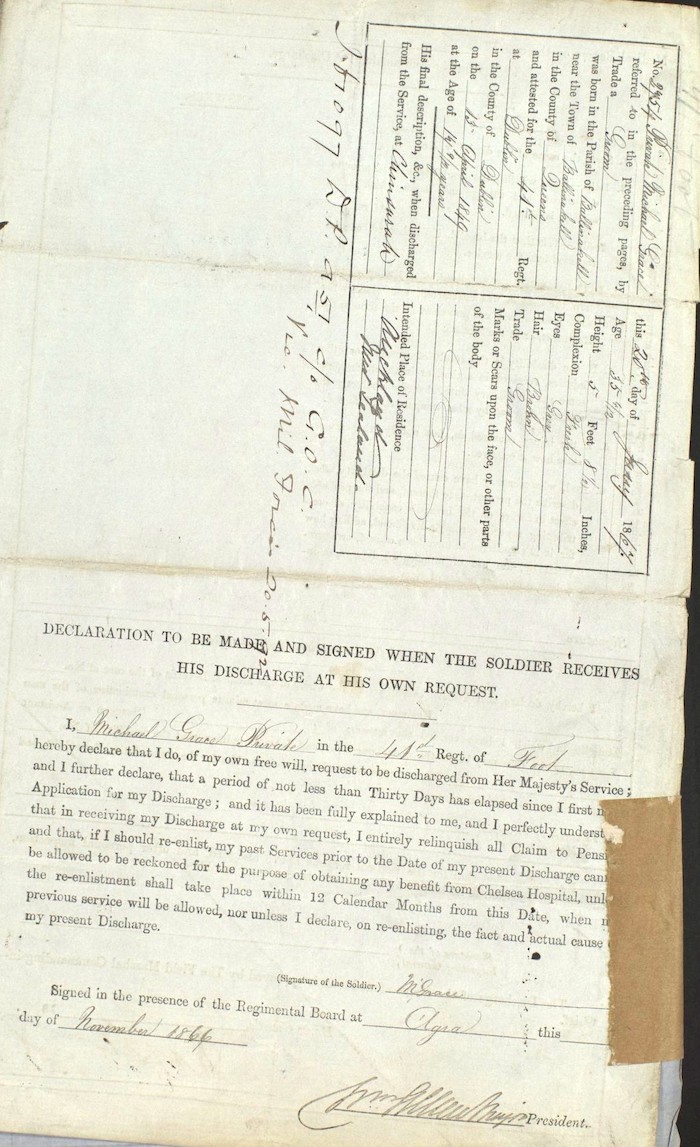 No. 2754 Private Michael Grace
referred to in the preceding pages, by
Trade a Groom
was born in the Parish of Ballinakill
near the Town of Ballinakill
in the County of Queens
and attested for the 41st Regt.
at Dublin
in the County of Dublin
on the 13 April 1849
at the Age of years
His final description, &c., when discharged
from the Service, at Chinsurah
this 20th day of Jany 1867
Age 35
Height 5 Feet 8½ Inches,
Complexion Fresh
Eyes Grey
Hair Brown
Trade Groom
Marks or Scars upon the face, or other parts
of the body
Intended Place of Residence
Auckland
New Zealand
c/o G.O.C.
Vic. Mil. Forces
DECLARATION TO BE MADE AND SIGNED WHEN THE SOLDIER RECEIVES
HIS DISCHARGE AT HIS OWN REQUEST.
I, Michael Grace Private in the 41st Regt. of Foot
hereby declare that I do, of my own free will, request to be discharged from Her Majesty's Service;
and I further declare, that a period of not less than Thirty Days has elapsed since I first
Application for my Discharge; and it has been fully explained to me, and I perfectly underst
that in receiving my Discharge at my own request, I entirely relinquish all Claim to Pensi
and that, if I should re-enlist, my past Services prior to the Date of my present Discharge can
be allowed to be reckoned for the purpose of obtaining any benefit from Chelsea Hospital, unl
the re-enlistment shall take place within 12 Calendar Months from this Date, when
previous service will be allowed, nor unless I declare, on re-enlisting, the fact and actual cause
my present Discharge.
(Signature of the Soldier.) M Grace
Signed in the presence of the Regimental Board at Agra this
day of November 1866
Major President.